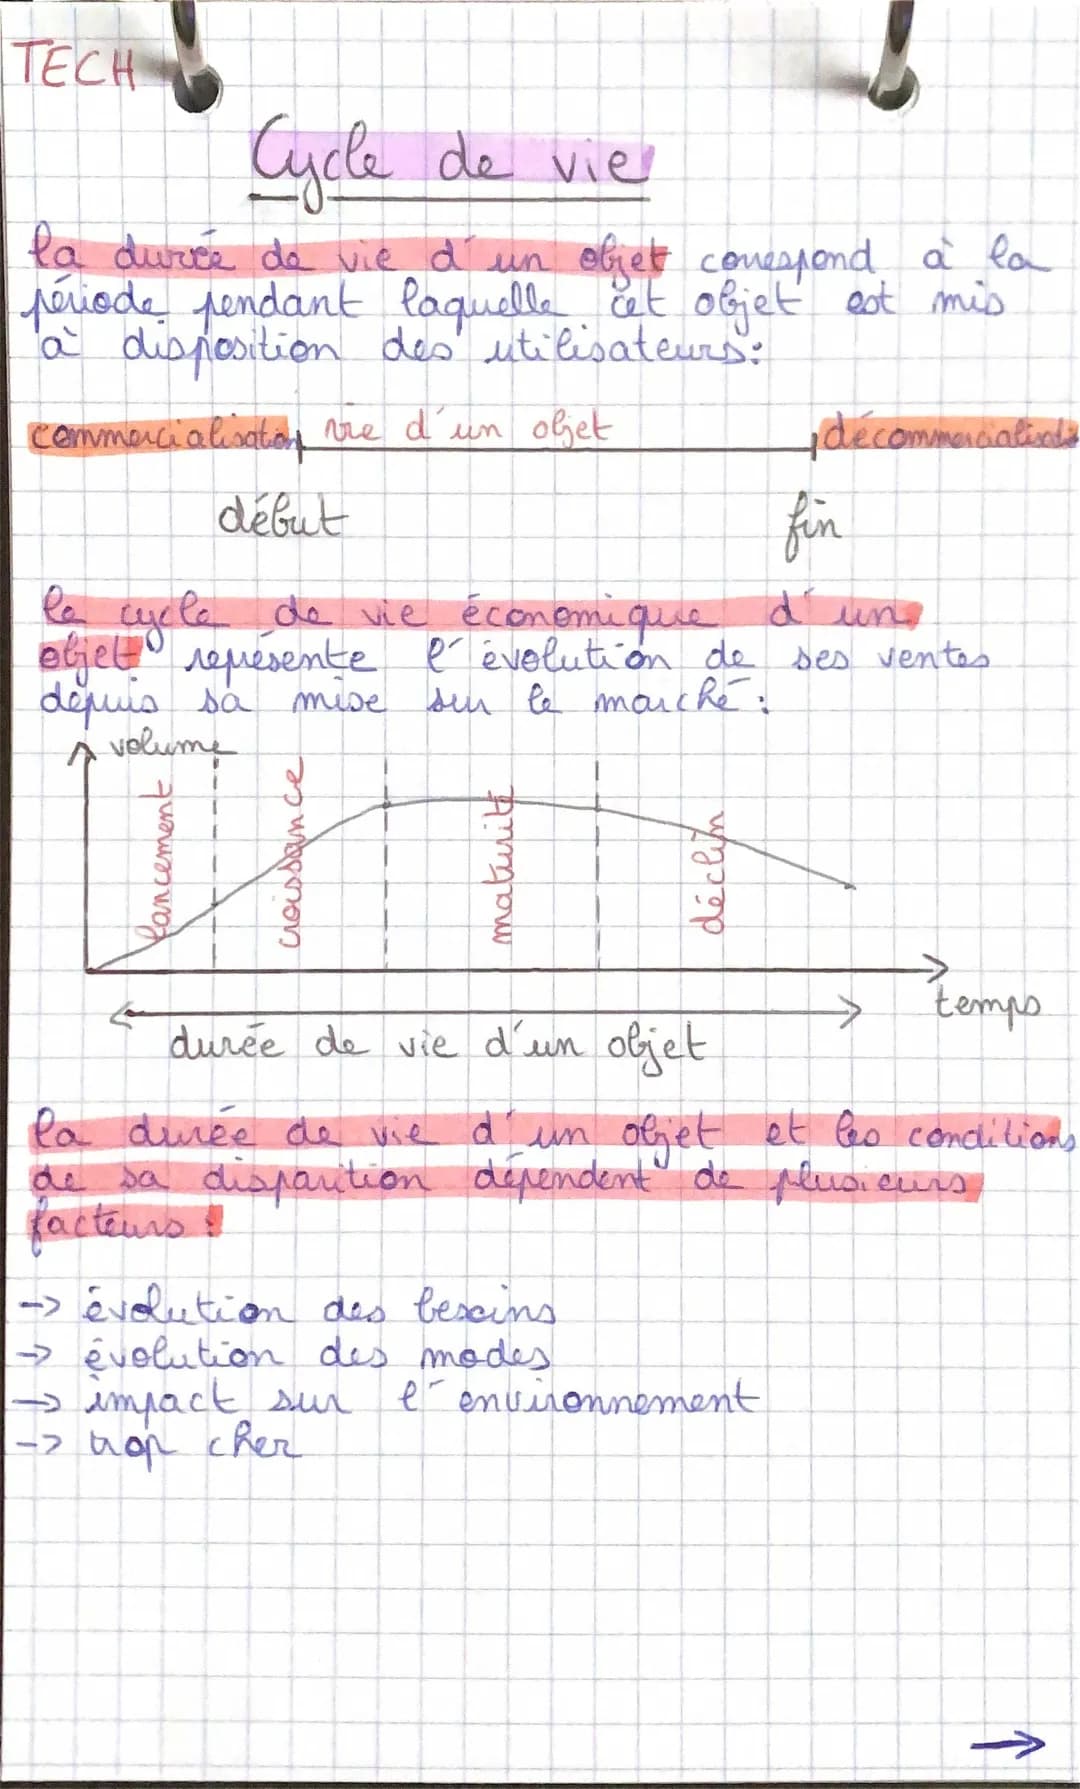 TECH
Cycle de vie
la durée de vie d'un objet correspond à la
période pendant laquelle cet objet est mis
à disposition des utilisateurs:
commercialisation vie d'un objet décommercialisat
début fin
le cycle de vie économique d'un
objet représente l'évolution de ses ventes
depuis sa mise sur le marché :
volume
lancement
croissance
maturité
déclin
temps
durée de vie d'un objet
la durée de vie d'un objet et les conditions
de sa disparition dépendent de plusieurs
facteurs :
-> évolution des besoins
-> évolution des modes
-> impact sur l'environnement
-> trop cher